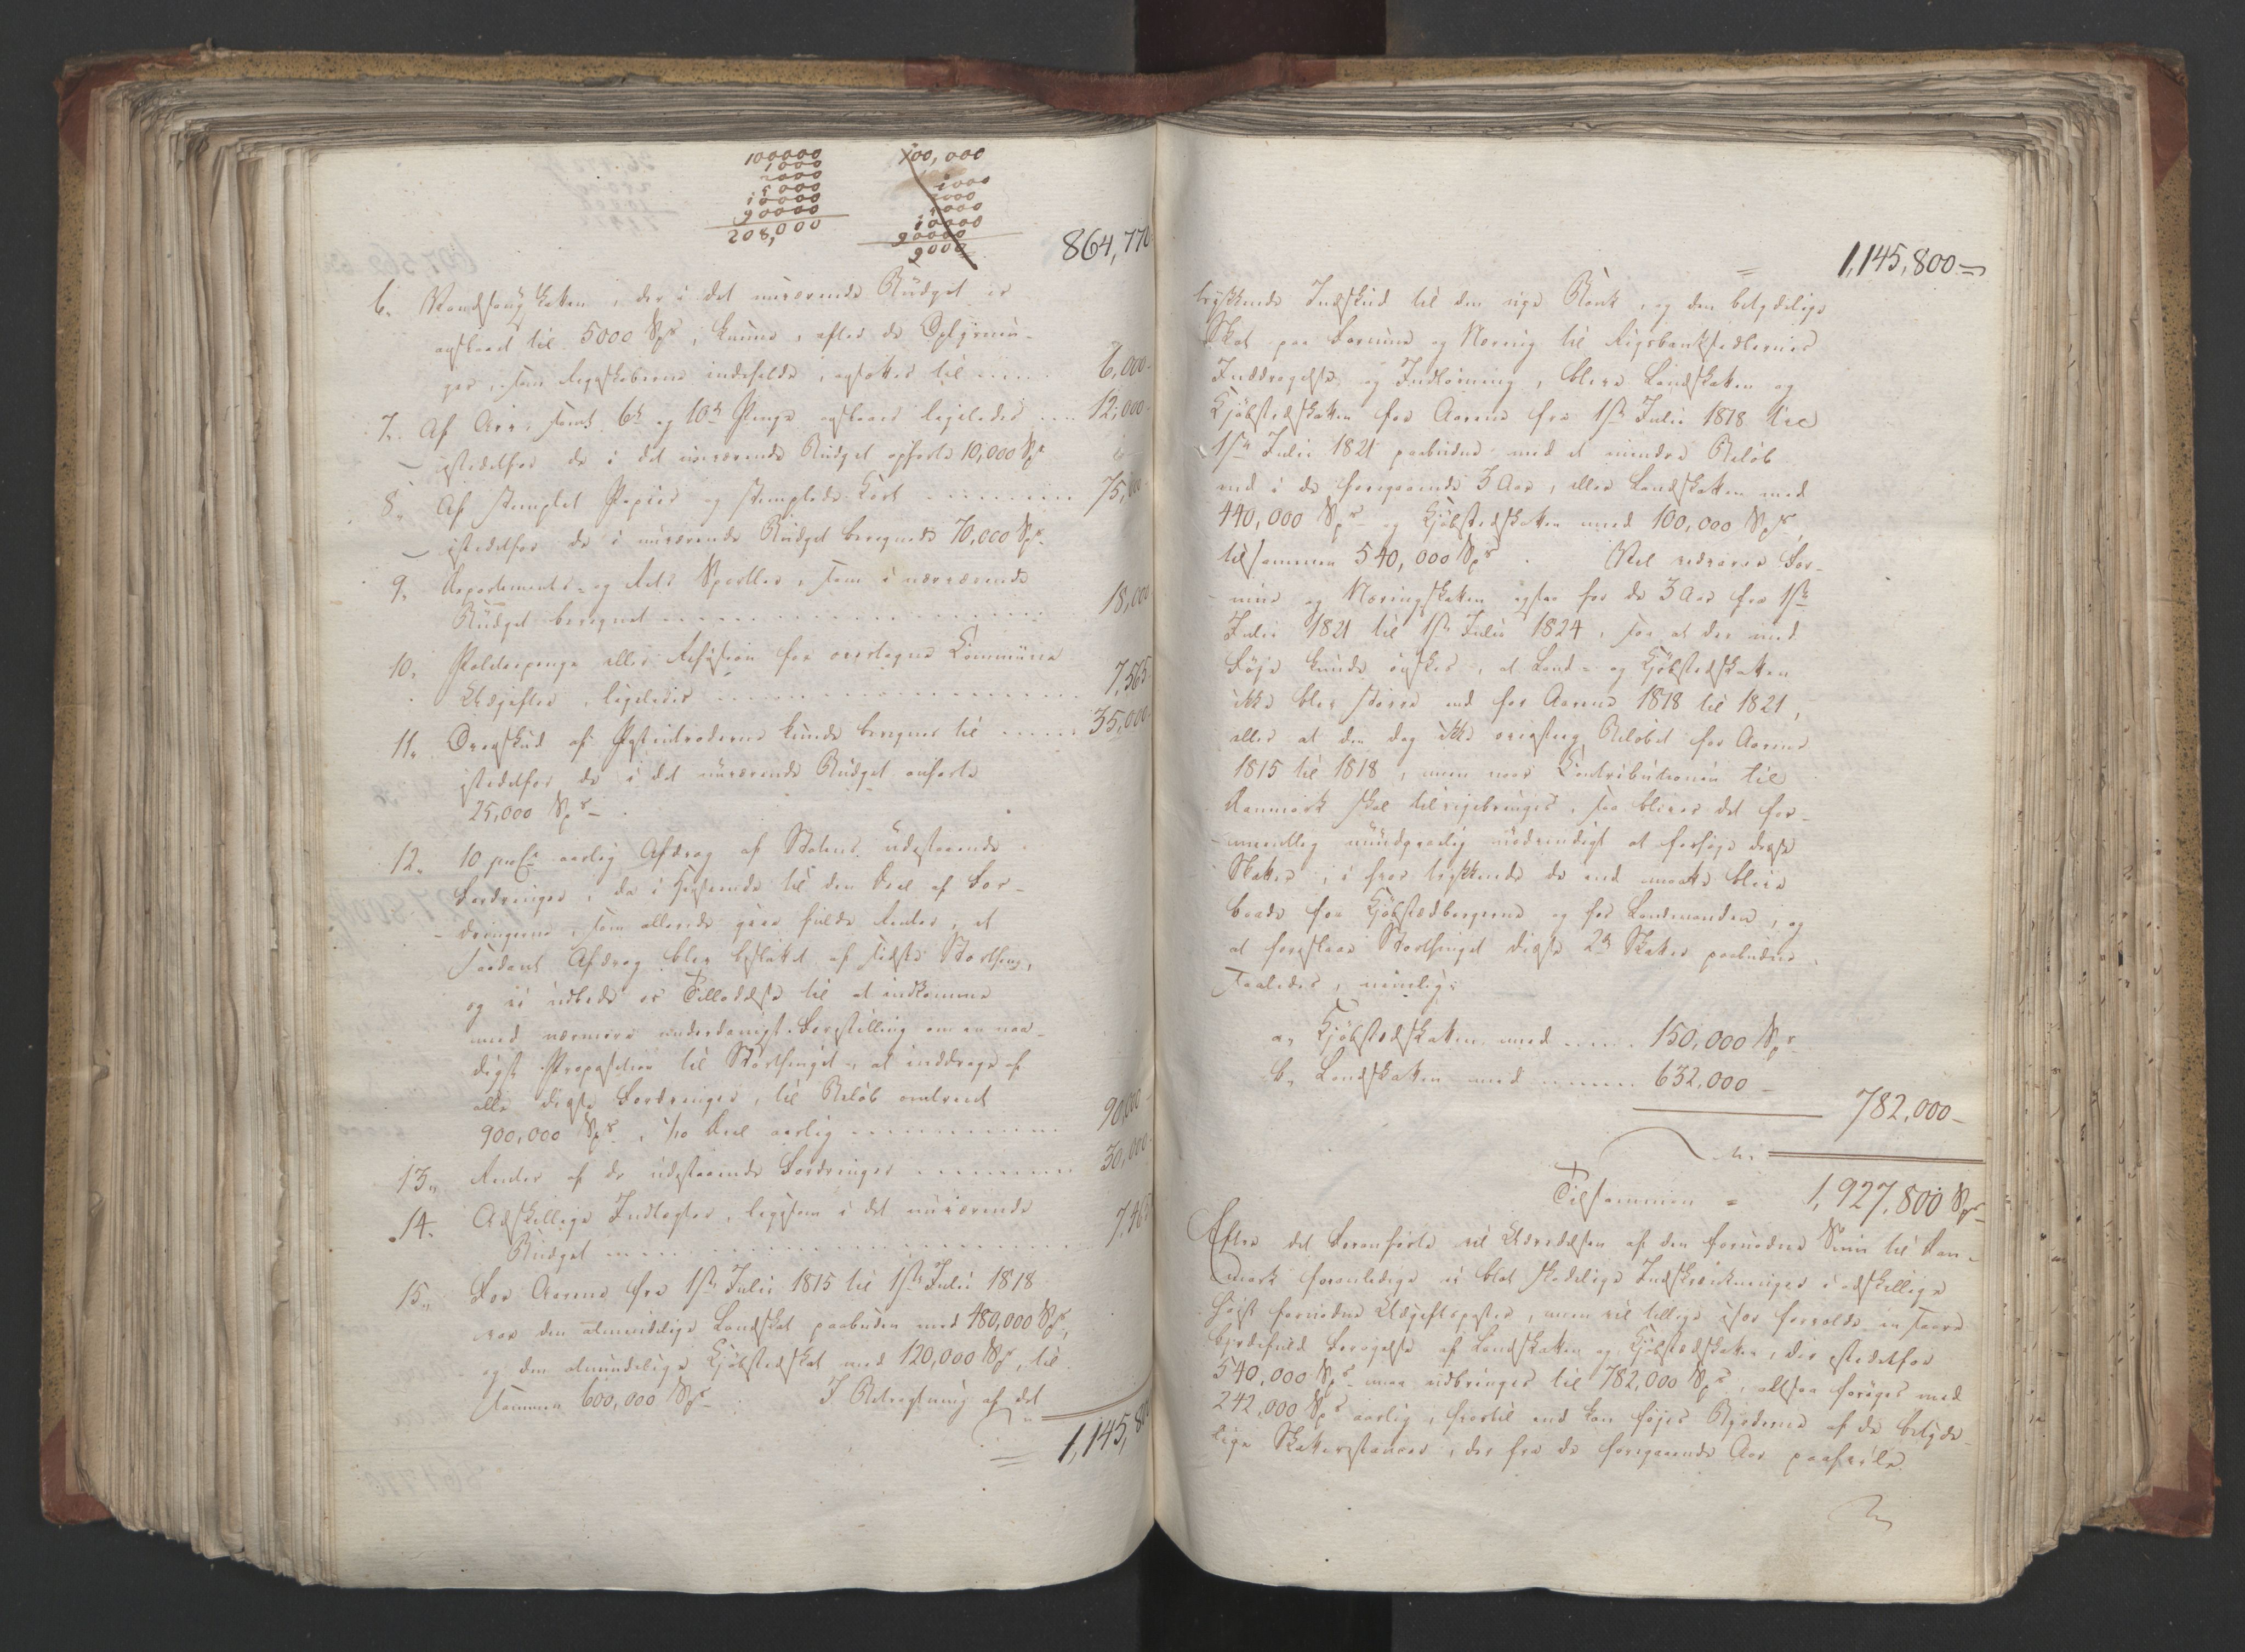 100000
1000
2000
5000
10000
90000
208,000
100,000
1000
2000
5000
10000
90000
9000
864,770
6. skatten, der i det nuværende Budget er
anslaaet til 5000 Spr, kunne, efter de Oplysnin-
ger, som Regnskaberne indeholde, ansættes til ..... 6,000-
7. Af Arv- samt 6te og 10de Penge anslaaes ligeledes .... 12,000-
istedetfor de i det nuværende Budget opførte 10,000 Spr
8. Af stemplet Papir og stemplede Kort ......... 75,000-
istedetfor de i nuværende Budget beregnede 70,000 Spr-
9. Departements- og Rets Sportler, som i nærværende
Budget beregnet ................. 18,000
10. penge eller Refusion for overtagne Commune
Udgifter, ligeledes .................. 7,565-
11. Overskud af Postindretn kunde beregnes til ...... 35,000-
istedetfor de i det nuværende Budget anførte
25,000 Spr-
12. 10 proCt aarlig Afdrag af Statens udestaaende
Fordringer, da i Henseende til den Deel af For-
dringerne, som allerede giver fulde Renter, et
saadant Afdrag blev besluttet af sidste Storthing,
og vi udbede os Tilladelse til at indkomme
med nærmere underdanigst Forestilling om en naa-
digst Proposition til Storthinget, at inddrage af
alle disse Fordringer, til Beløb omtrent
900,000 Spr, 1/10 Deel aarlig .............. 90,000-
13. Renter af de udestaaende Fordringer ......... 30,000-
14. Adskillige Indtægter, ligesom i det nuværende
Budget ..................... 7,465
15. For Aarene fra 1ste Julii 1815 til 1ste Julii 1818
var den almindelige Landskat paabuden med 480,000 Spr,
og den almindelige Kjøbstedskat med 120,000 Spr, til-
sammen 600,000 Spr- I Betragtning af det
= 1,145,800
= 1,145,800=
trykkende Indskud til den nye Bank, og den betydelige
Skat paa Formue og Næring til Rigsbanksedlernes
Inddragelse og Indløsning, bleve Landskatten og
Kjøbstedskatten for Aarene fra 1ste Julii 1818 til
1ste Julii 1821 paabudne med et mindre Beløb
end i de foregaaende 3 Aar, eller Landskatten med
440,000 Spr og Kjøbstedskatten med 100,000 Spr,
tilsammen 540,000 Spr. Vel For-
mue og Næringsskatten for de 3 Aar fra 1ste
Julii 1821 til 1ste Julii 1824, saa at der med
Føje kunde ønskes, at Land- og Kjøbstedskatten
ikke blev større end for Aarene 1818 til 1821,
eller at den dog ikke oversteg Beløbet for Aarene
1815 til 1818, men naar Contributionen til
Danmark skal tilvejebringes, saa bliver det for-
meentlig uundgaaelig nødvendigt at forhøje disse
Skatter, i hvor trykkende de end maatte blive
baade for Kjøbstædborgerne og for Landmanden, og
at foreslaae Storthinget disse 2de Skatter paabudne
saaledes, nemlig:
a, Kjøbstedskatten med ..... 150,000 Spr-
b, Landskatten med ...... 632,000-
782,000-
Tilsammen = 1,927,800 Spr-
Efter det Foranførte vil Udredelsen af den fornødne Sum til Dan-
mark foranledige ei blot skadelige Indskrænkninger i adskillige
højst fornødne Udgiftsposter, men vil tillige forvolde en saare
byrdefuld Forøgelse af Landskatten og Kjøbstedskatten, der istedetfor
540,000 Spr maa udbringes til 782,000 Spr, altsaa forøges med
242,000 Spr aarlig, hvortil end kan føjes Byrderne af de betyde-
lige Skatterestancer, der fra de foregaaende Aar paahvile